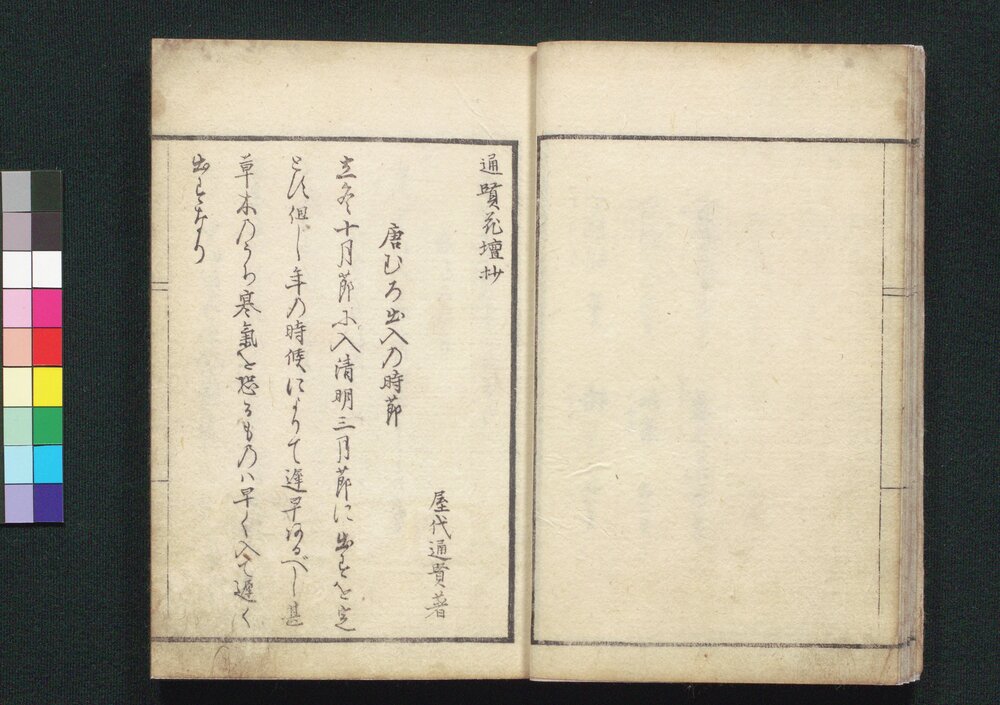 通賢花壇抄
屋代通賢著
唐むろ出入の時節
立冬十月節に入清明三月節に出すを定
とす但し年の時候によりて遅早あるべし甚
草木のうち寒氣を恐るものハ早く入て遅く
出すなり